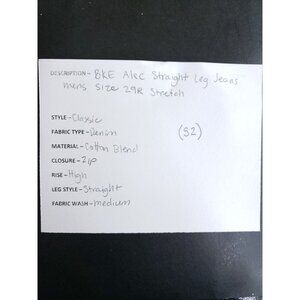 DESCRIPTION - BKE Alec Straight Leg Jeans
mens Size 29R Stretch
STYLE - Classic
FABRIC TYPE - Denim
(S2)
MATERIAL - Cotton Blend
CLOSURE - Zip
RISE - High
LEG STYLE - Straight
FABRIC WASH - medium